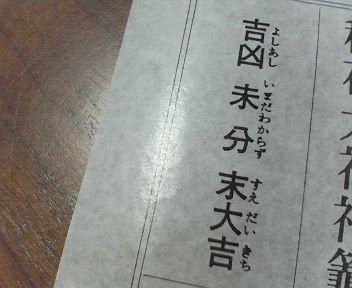 吉凶 未分 末大吉
よしあし いまだわからず すえだいきち
大神神籤